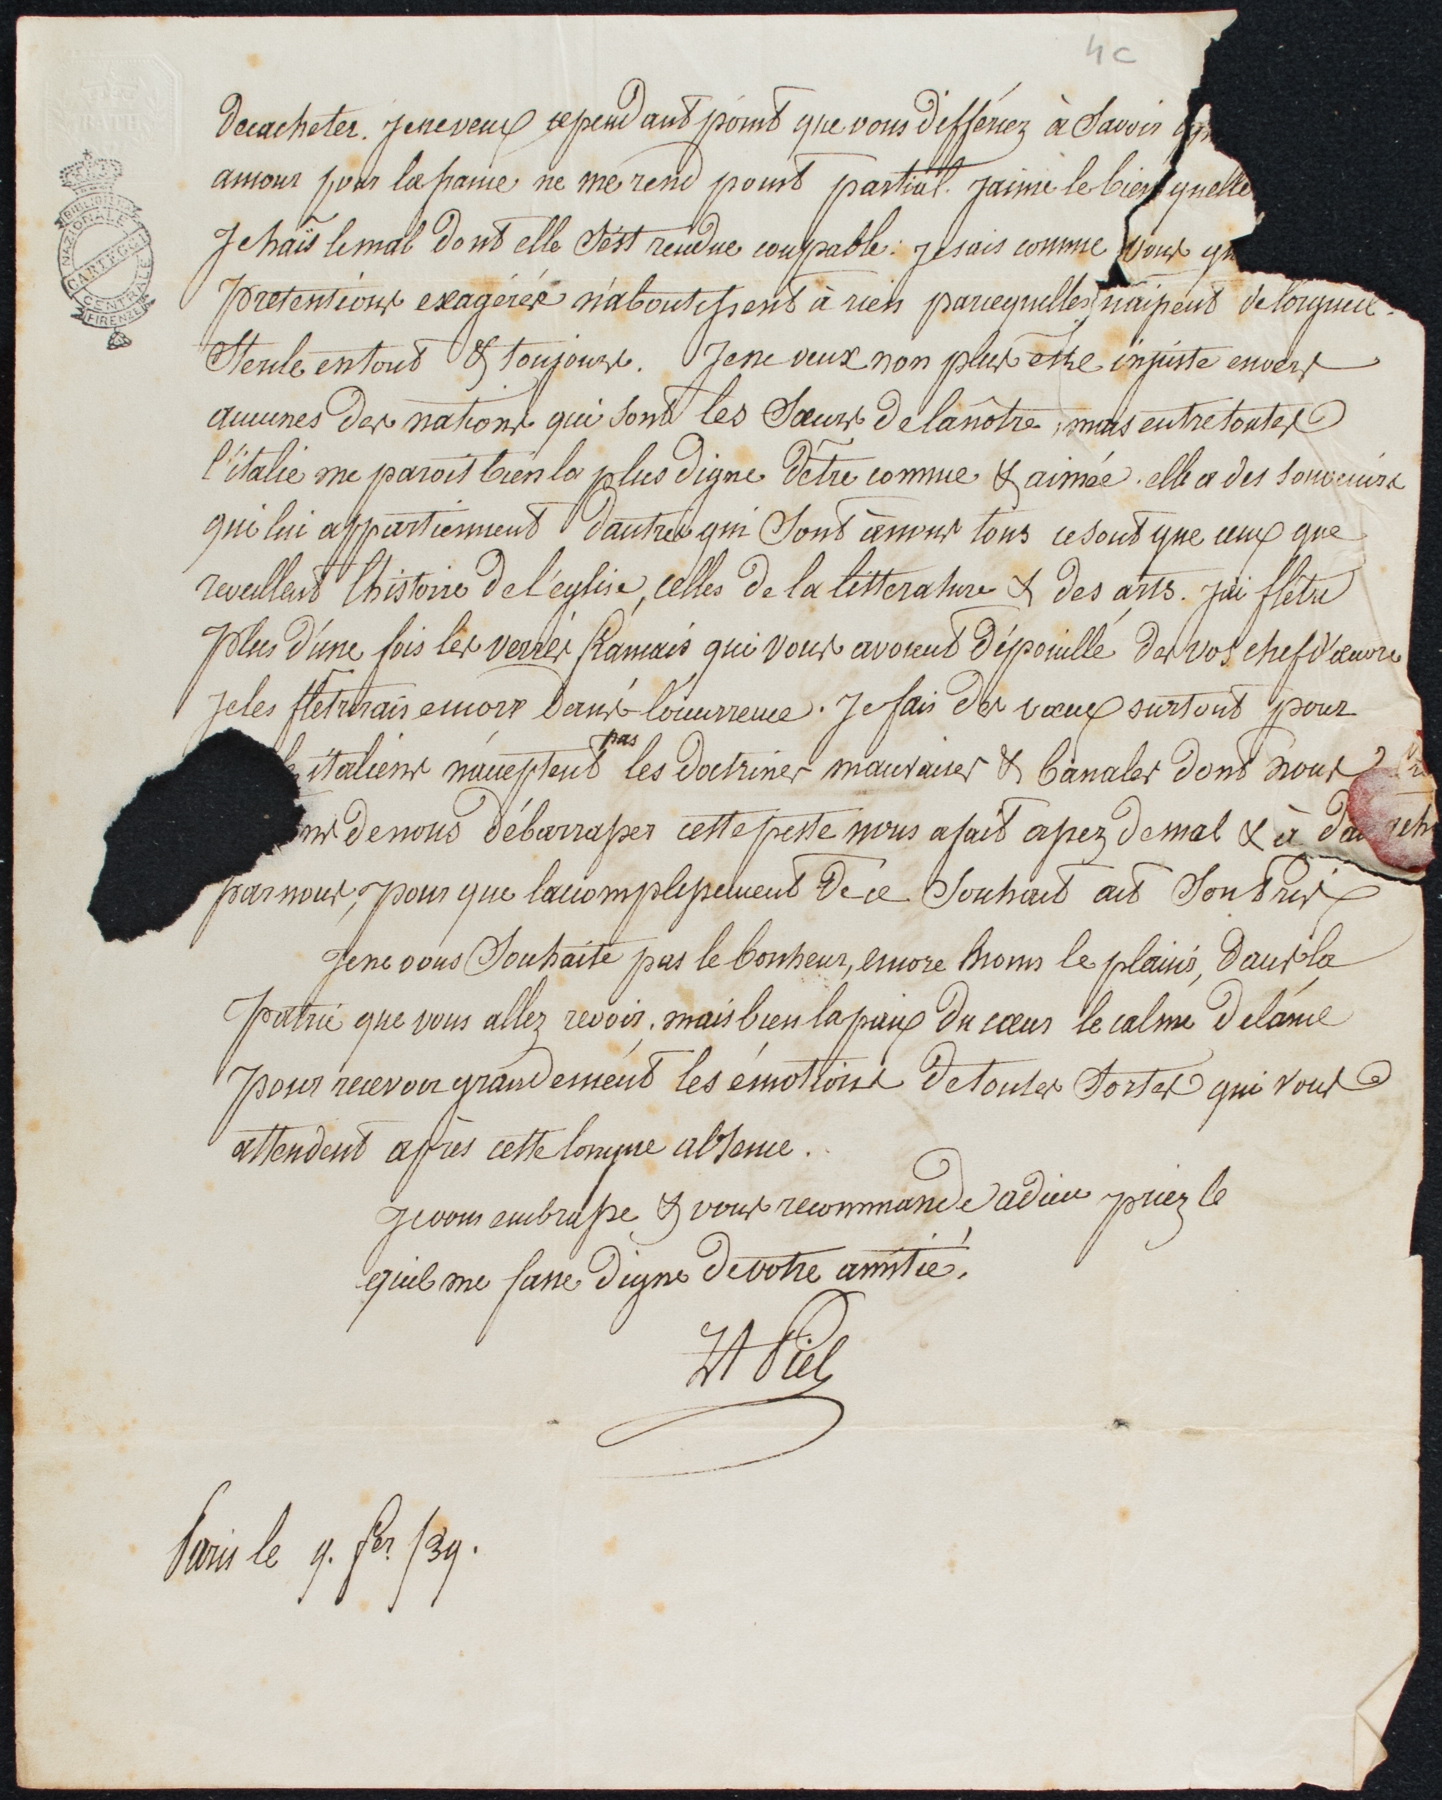 4c
BIBLIOTECA NAZIONALE CENTRALE
CARTEGGI
FIRENZE
decacheter. je ne veux cependant point que vous différiez à savoir
amour pour la france ne me rend point partial. j'aime le bien qu'elle
je haïs le mal dont elle s'est rendue coupable : je sais comme vous
pretentions exagérées n'aboutissent à rien parcequ'elles naissent de l'orgueil.
Sterile en tout & toujours. je ne veux non plus être injuste envers
aucunes des nations qui sont les Sœurs de la nôtre, mais entre toutes
l'italie me paroit bien la plus digne d'être connue & aimée. elle a des souvenirs
qui lui appartiennent d'autres qui sont à nous tous ce sont que ceux que
reveillent l'histoire de l'église, celles de la litterature & des arts. j'ai flétri
plus d'une fois les verrès francais qui vous avoient dépouillé de vos chefs d'œuvre
je les flétrirais encore dans l'ocurrence. je fais des vœux surtout pour
italiens n'acceptent pas les doctrines mauvaises & banales dont nous
de nous débarrasser cette peste nous a fait assez de mal & à
par nous, pour que l'accomplissement de ce Souhait ait Son prix
je ne vous Souhaite pas le bonheur, encore moins le plaisir, dans la
patrie que vous allez revoir. mais bien la paix du cœur le calme de l'âme
pour recevoir grandement les émotions de toutes Sortes qui vous
attendent après cette longue absence.
je vous embrasse & vous recommande a dieu priez le
qu'il me fasse digne de votre amitié.
LA Piel
Paris le 9. fer /39.